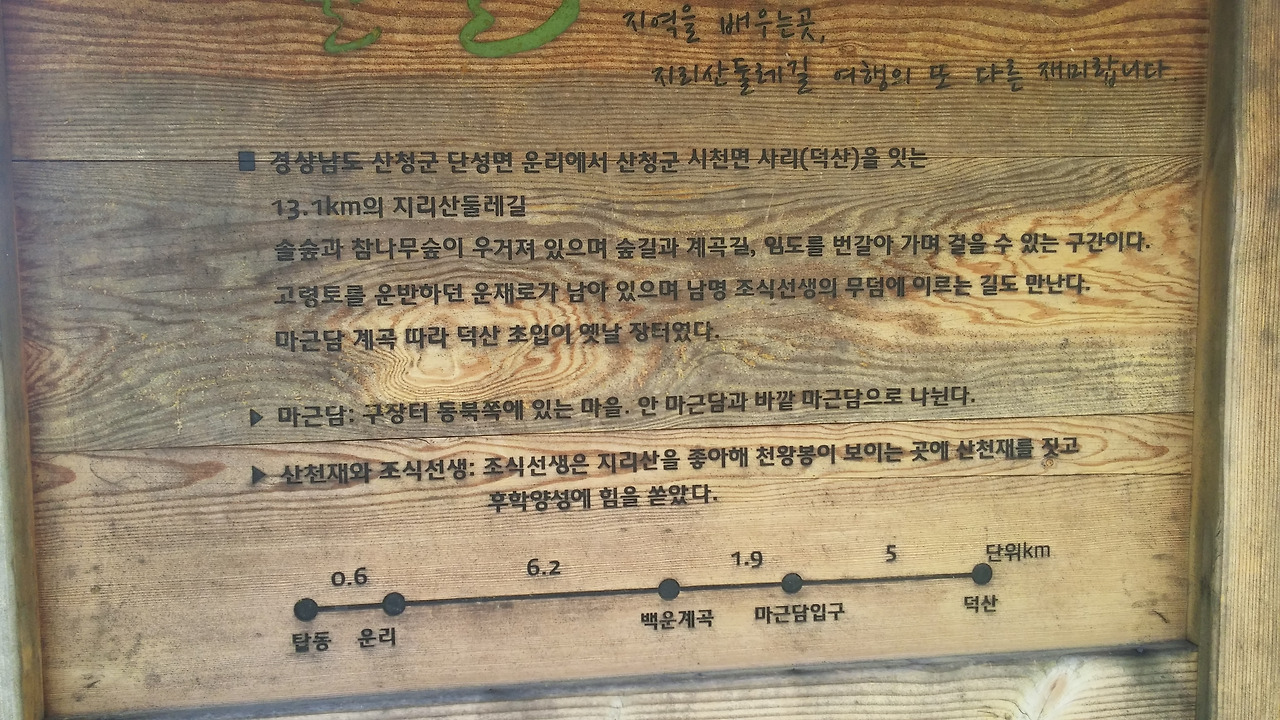 지역을 배우는곳,
지리산둘레길 여행의 또 다른 재미랍니다.
■ 경상남도 산청군 단성면 운리에서 산청군 시천면 사리(덕산)을 잇는
13.1km의 지리산둘레길
솔숲과 참나무숲이 우거져 있으며 숲길과 계곡길, 임도를 번갈아 가며 걸을 수 있는 구간이다.
고령토를 운반하던 운재로가 남아 있으며 남명 조식선생의 무덤에 이르는 길도 만난다.
마근담 계곡 따라 덕산 초입이 옛날 장터였다.
▶ 마근담: 구장터 동북쪽에 있는 마을. 안 마근담과 바깥 마근담으로 나뉜다.
▶ 산천재와 조식선생: 조식선생은 지리산을 좋아해 천왕봉이 보이는 곳에 산천재를 짓고
후학양성에 힘을 쏟았다.
0.6 6.2 1.9 5 단위km
탑동 운리 백운계곡 마근담입구 덕산